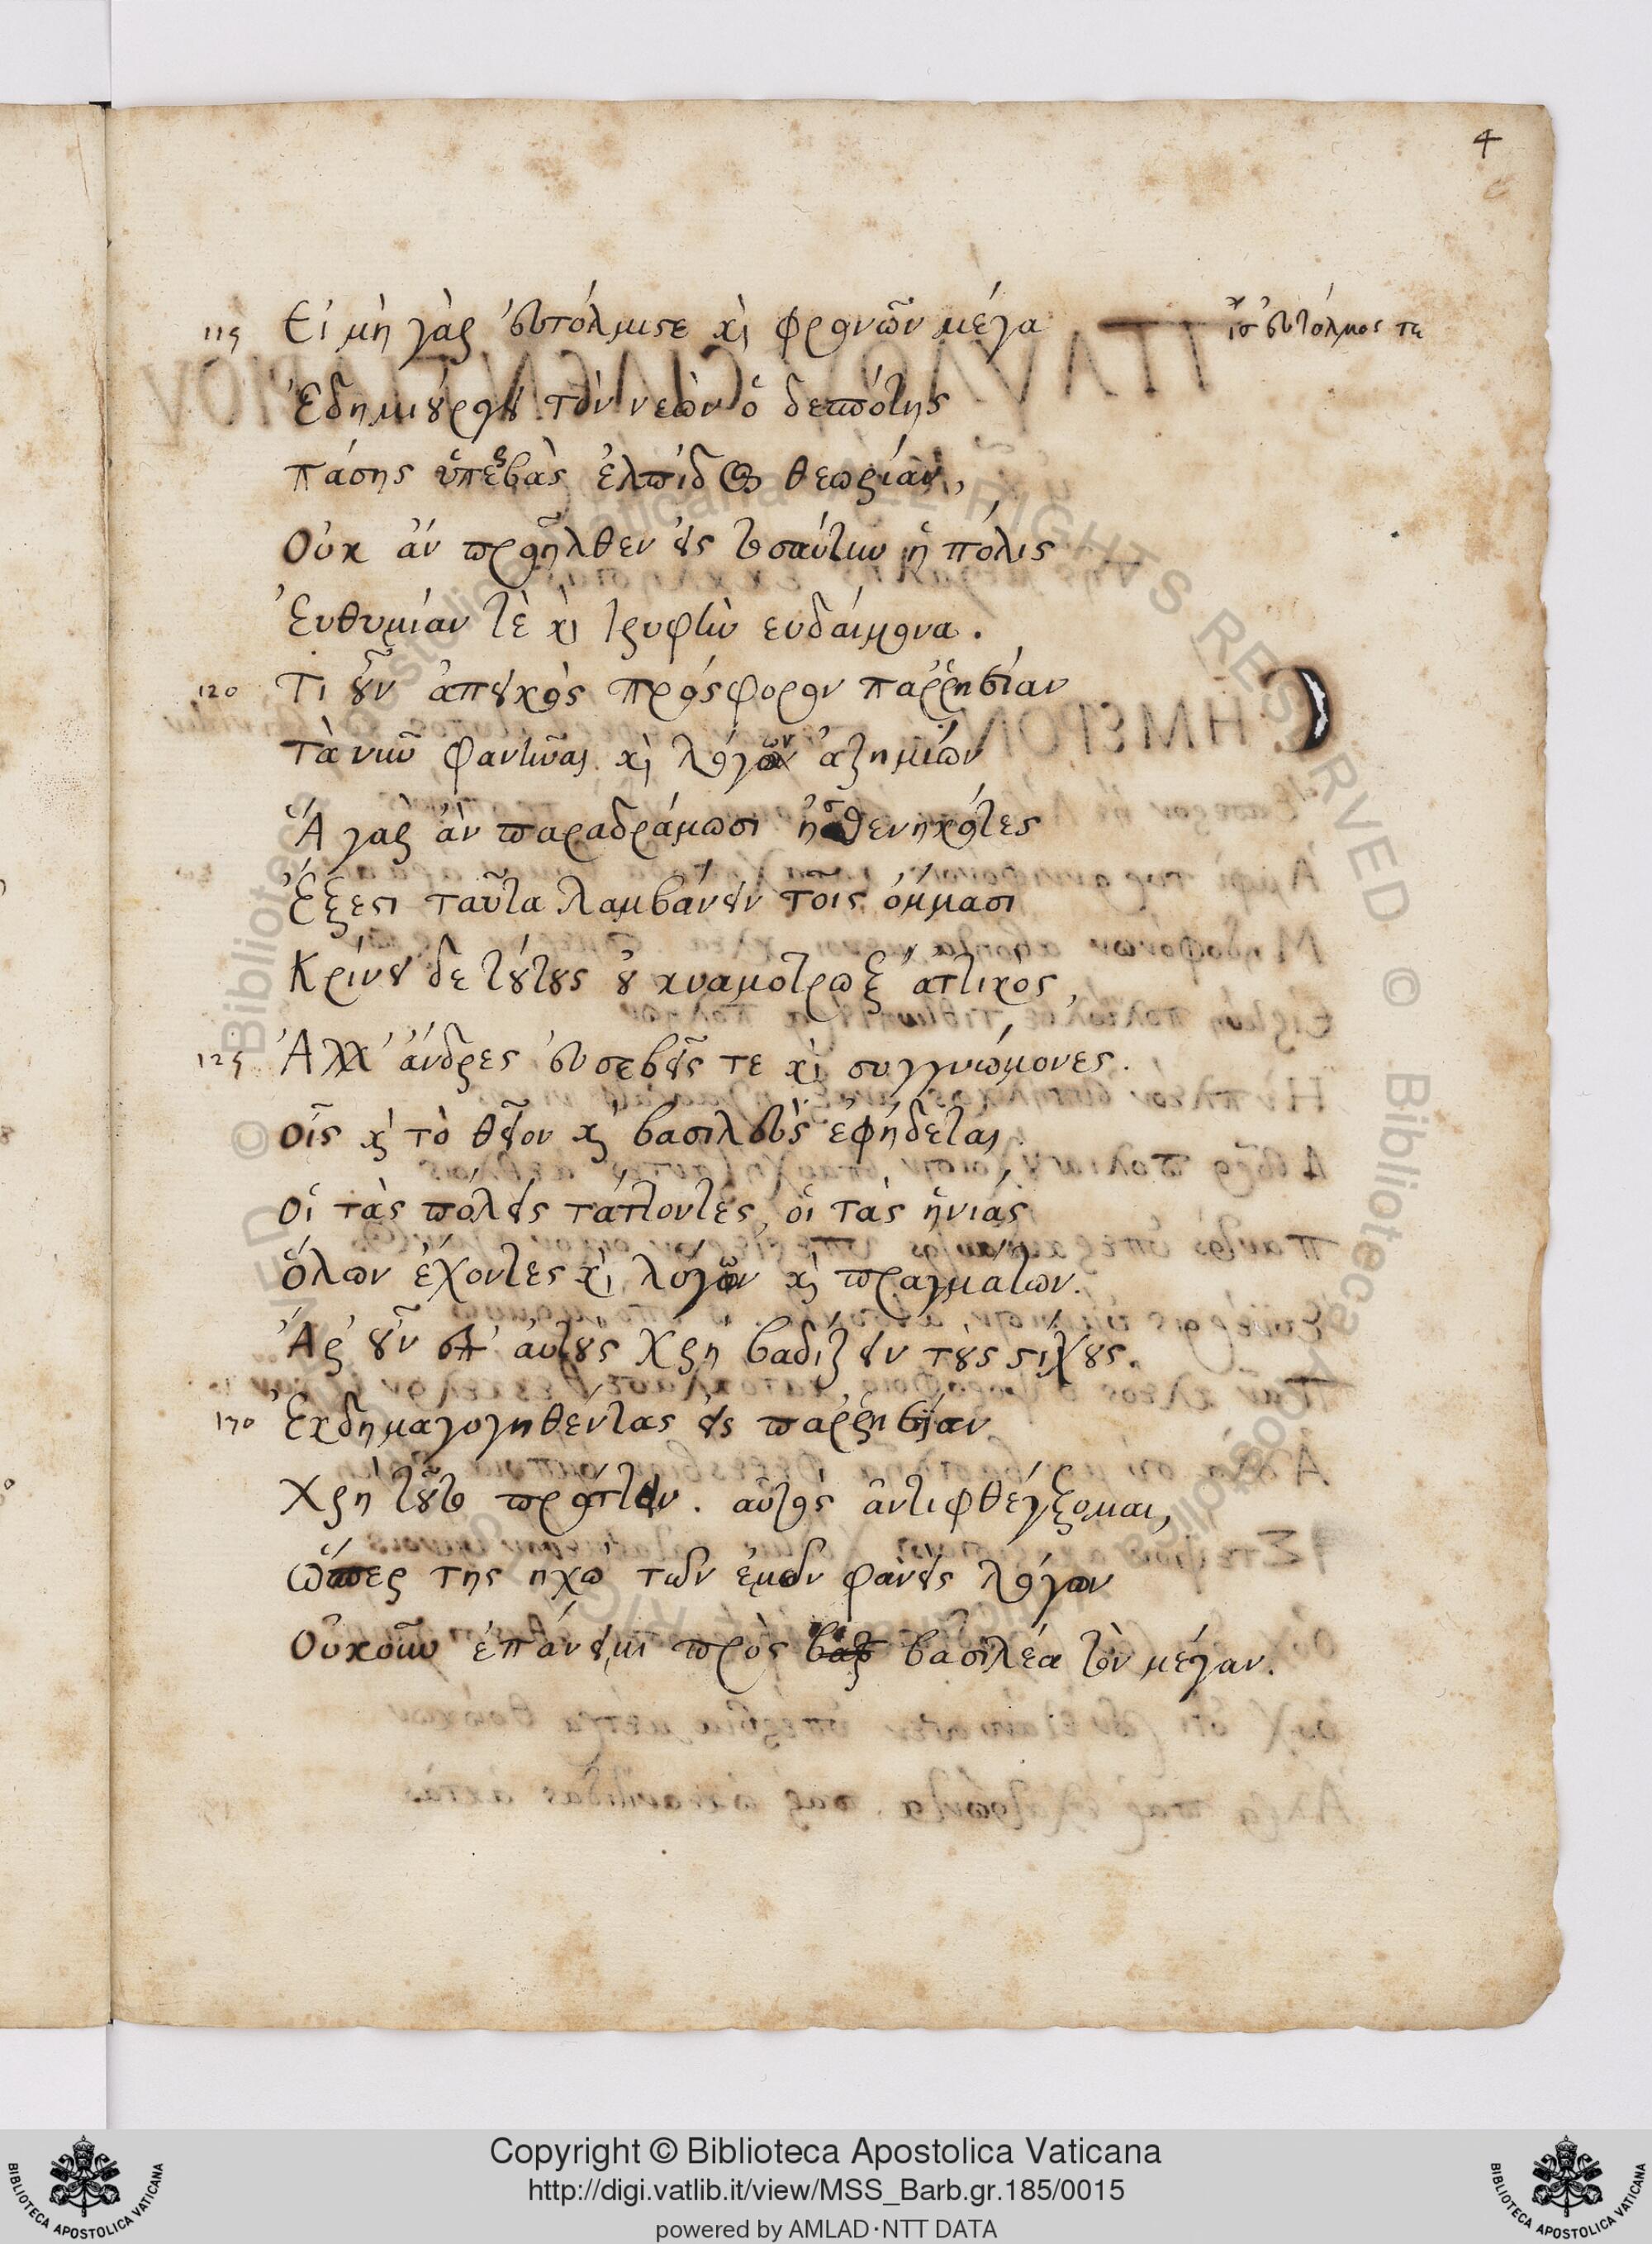 4
115 Εἰ μὴ γὰρ εὐτόλμησε καὶ φρονῶν μέγα
Ἐδημιούργει τὸν νεὼν ὁ δεσπότης
πάσης ὑπερβὰς ἐλπίδος θεωρίαν,
Οὐκ ἂν προῆλθεν εἰς τοσαύτην ἡ πόλις
Ἐυθυμίαν τὲ καὶ τρυφὴν ευδαίμονα.
120 Τι οὖν ἀπεικὸς πρόσφορον παῤῥησίαν
τὰ νῦν φανῆναι καὶ λόγων ἀζημιῶν
Ἃ γαρ ἂν παραδράμωσι ησθενηκότες
Ἔξεστι ταῦτα λαμβάνειν τοῖς ὄμμασι
Κρίνει δε τούτους οὐ κυαμοτρωξ ἀττικος,
125 Ἀλλ' ἄνδρες ευσεβεῖς τε καὶ συγγνώμονες.
οἷς καὶ τὸ θεῖον καὶ βασιλεὺς ἐφήδεται
οἱ τὰς πόλεις τάττοντες, οἱ τὰς ἡνιας
ὅλων ἔχοντες καὶ λογων καὶ πραγμάτων.
Ἀρ οὖν αὐτους χρη βαδιζειν τοὺς στίχους.
130 Ἐκδημαγογηθέντας εἰς παρρησίαν
Χρη τοῦτο πράττειν. αὐτὸς ἀντιφθέγξομαι,
ὥσπερ της ηχὼ τῶν ἐμῶν φανεὶς λόγων
Οὐκοῦν ἐπάνειμι πρὸς βασιλέα τὸν μέγαν.
Copyright © Biblioteca Apostolica Vaticana
http://digi.vatlib.it/view/MSS_Barb.gr.185/0015
powered by AMLAD·NTT DATA
BIBLIOTECA APOSTOLICA VATICANA
BIBLIOTECA APOSTOLICA VATICANA